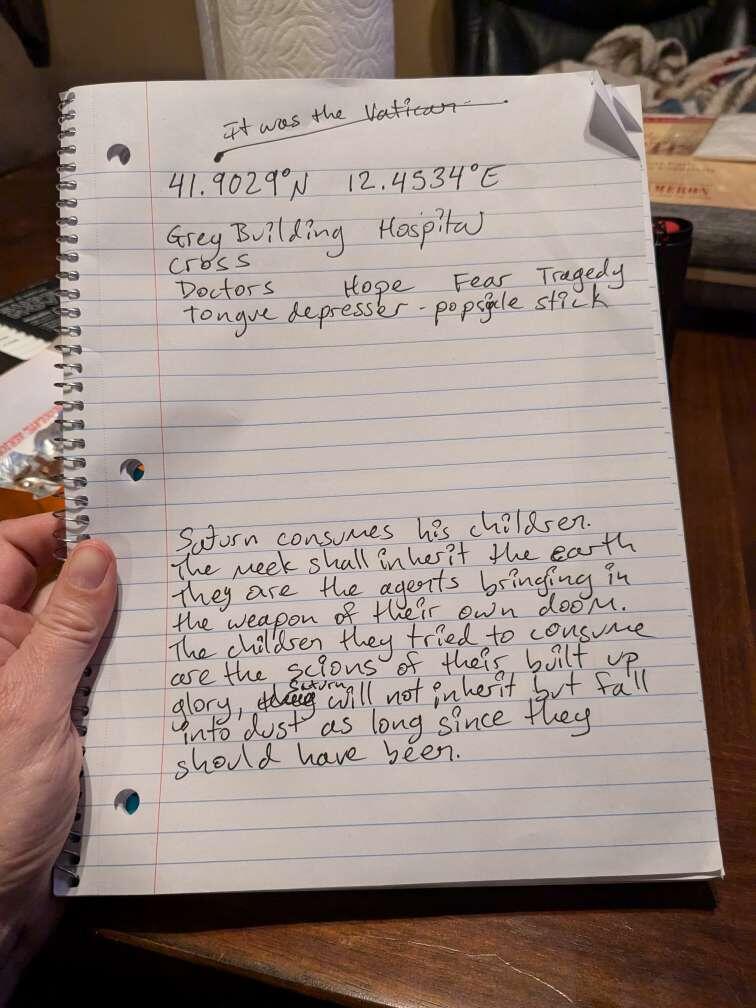 It was the Vatican
41.9029°N 12.4534°E
Grey Building Hospital
Cross
Doctors Hope Fear Tragedy
tongue depresser - popsicle stick
Saturn consumes his children.
The meek shall inherit the earth
They are the agents bringing in
the weapon of their own doom.
The children they tried to consume
are the scions of their built up
glory, Saturn will not inherit but fall
into dust as long since they
should have been.